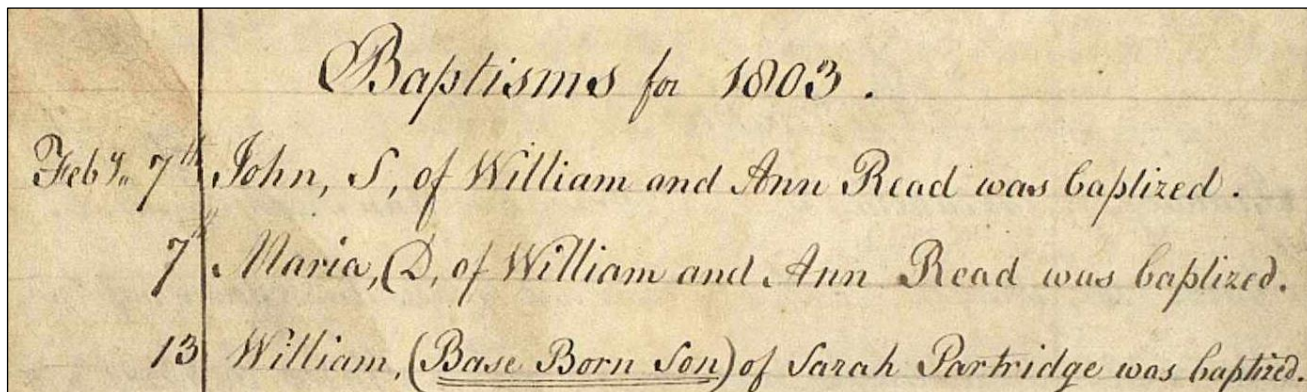 Baptisms for 1803.
Feby. 7th John, S, of William and Ann Read was baptized.
7th Maria, D, of William and Ann Read was baptized.
13 William, (Base Born Son) of Sarah Partridge was baptized.